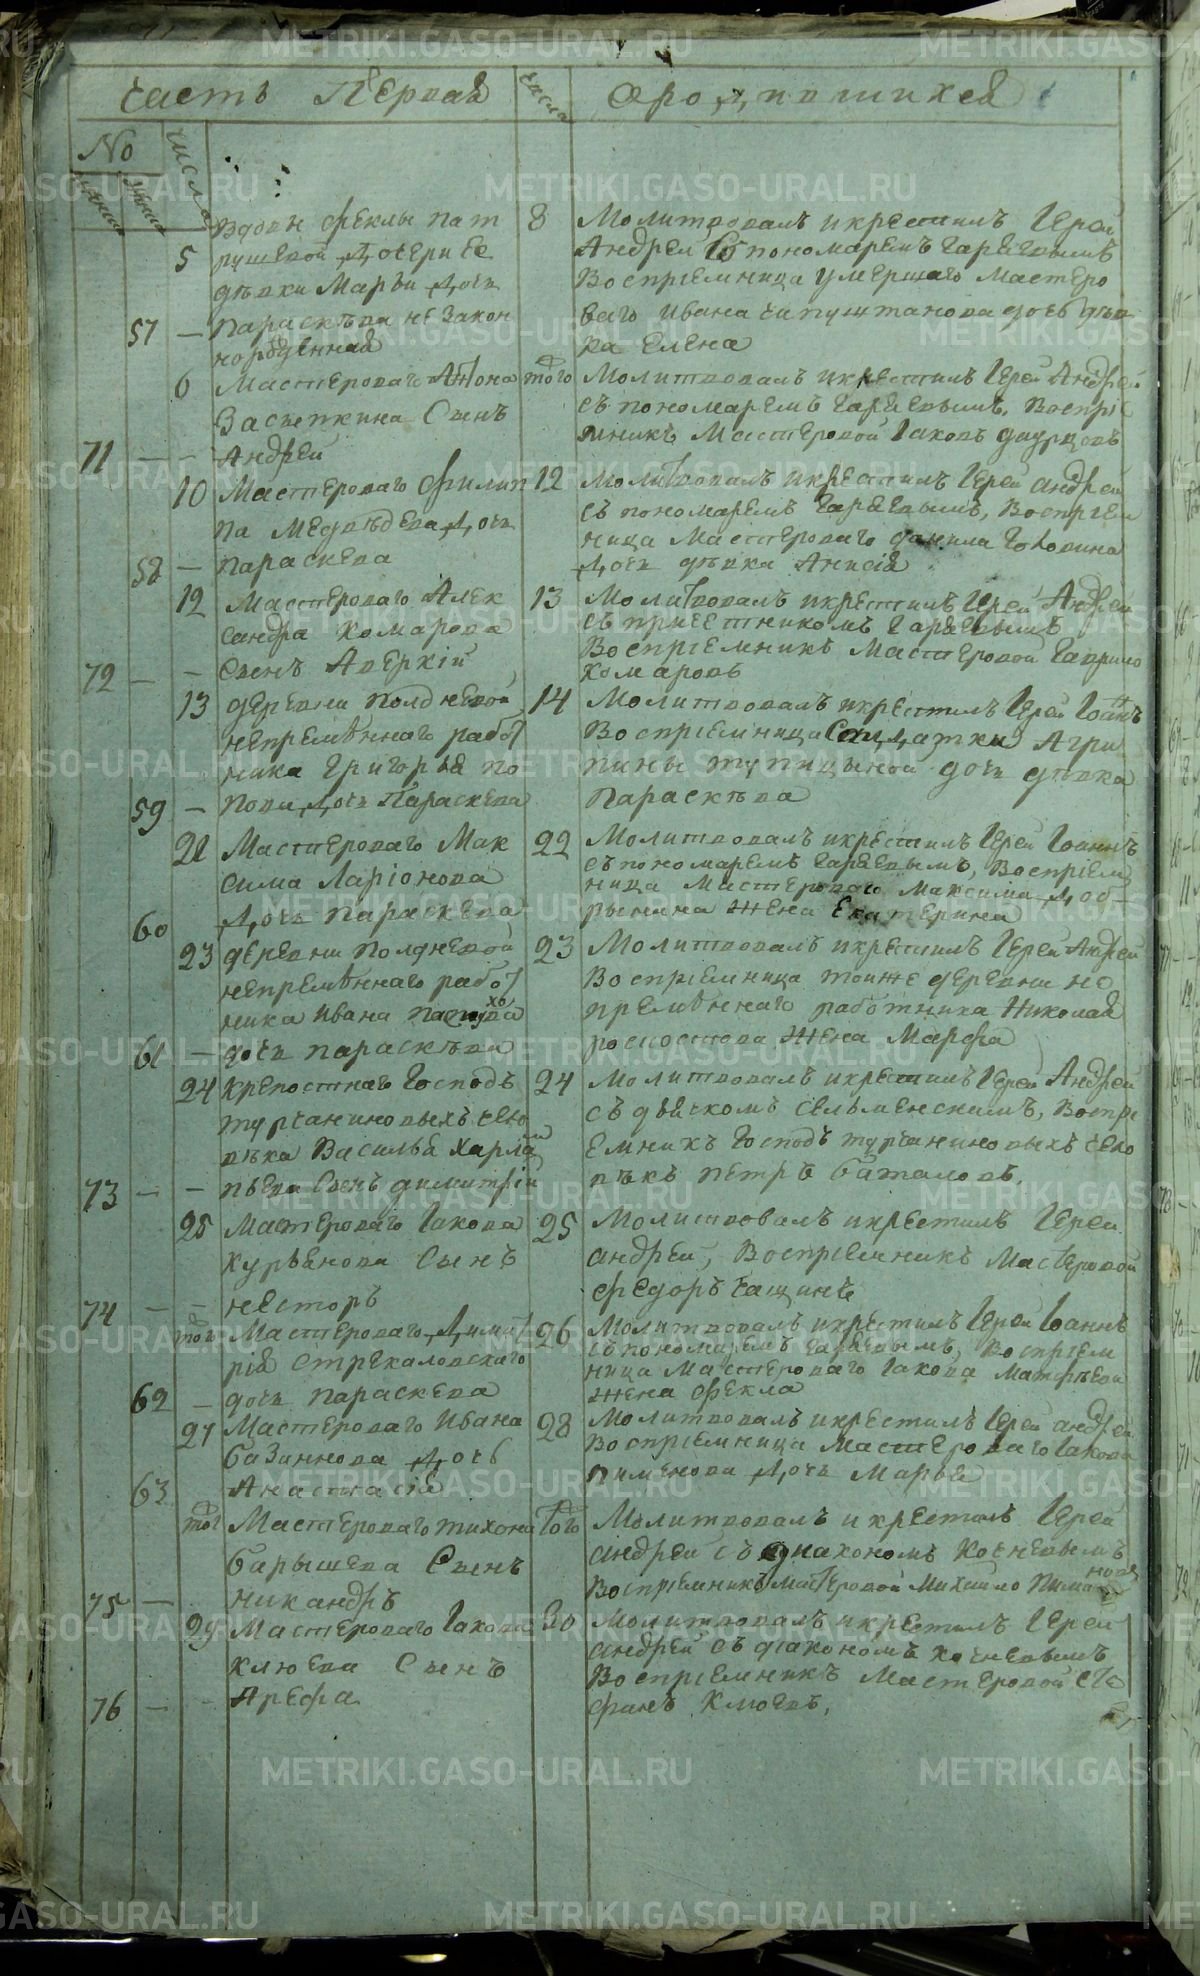 Часть Первая
числа
о родившихся
No
числа
вдовы Феклы Пат
рушевой дочери ее
5
девки Марьи дочь
57 — Параскѣва незакон
норожденная
8
Молитвовалъ и крестилъ Іерей
Андрей съ пономаремъ Гаряевымъ
Воспріемница умершаго Мастеро
ваго Ивана дочь дѣв
ка Елена
6 Мастероваго Антона
Засыпкина Сынъ
71 — — Андрей
того
Молитвовалъ и крестилъ Іерей Андрей
съ пономаремъ Гаряевымъ, Воспріе
мникъ Мастеровой Іаковъ
10 Мастероваго Филип
па Медвѣдева дочь
58 — Параскева
12
Молитвовалъ и крестилъ Іерей Андрей
съ пономаремъ Гаряевымъ, Воспріем
ница Мастероваго Данила Головина
дочь дѣвка Анисія
12 Мастероваго Алек
сандра Комарова
72 — — Сынъ Аверкій
13
Молитвовалъ и крестилъ Іерей Андрей
съ причетникомъ Гаряевымъ
Воспріемникъ Мастеровой Гаврило
Комаровъ
13 деревни Полдневой
непремѣннаго работ
ника Григорья По
59 — пова дочь Параскева
14
Молитвовалъ и крестилъ Іерей Іоаннъ
Воспріемница Солдатки Агри
пины Тупицыной дочь дѣвка
Параскѣва
21 Мастероваго Мак
сима Ларіонова
60 дочь Параскева
22
Молитвовалъ и крестилъ Іерей Іоаннъ
съ пономаремъ Гаряевымъ, Воспріем
ница Мастероваго Максима Доб
рынина жена Екатерина
23 деревни Полдневой
непремѣннаго работ
ника Ивана
61 — дочь Параскѣва
23
Молитвовалъ и крестилъ Іерей Андрей
Воспріемница тойже деревни не
премѣннаго работника Николая
жена Марфа
24 крепостнаго Господъ
Турчаниновыхъ чело
вѣка Василья Харлам
73 — — пьева Сынъ Димитрій
24
Молитвовалъ и крестилъ Іерей Андрей
съ дьячкомъ Сельменскимъ, Воспрі
емникъ Господъ Турчаниновыхъ чело
вѣкъ Петръ Баталовъ.
25 Мастероваго Іакова
Хурьянова Сынъ
74 — — Несторъ
25
Молитвовалъ и крестилъ Іерей
Андрей, Воспріемникъ Мастеровой
Федоръ Чащинъ
того Мастероваго Димит
рія Стрекаловскаго
62 — дочь Параскева
26
Молитвовалъ и крестилъ Іерей Іоаннъ
съ пономаремъ Гаряевымъ, Воспріем
ница Мастероваго Іакова Матфѣева
жена Фекла
27 Мастероваго Ивана
Базаннова дочь
63 Анастасія
28
Молитвовалъ и крестилъ Іерей Андрей
Воспріемница Мастероваго Іакова
Пименова дочь Марья
того Мастероваго Тихона
Барышева Сынъ
75 — Никандръ
того
Молитвовалъ и крестилъ Іерей
Андрей съ діакономъ Кочневымъ
Воспріемникъ Мастеровой Михайло
29 Мастероваго Іакова
Клюева Сынъ
76 — — Арефа
30
Молитвовалъ и крестилъ Іерей
Андрей съ діакономъ Кочневымъ
Воспріемникъ Мастеровой Сте
фанъ Клюевъ.
METRIKI.GASO-URAL.RU